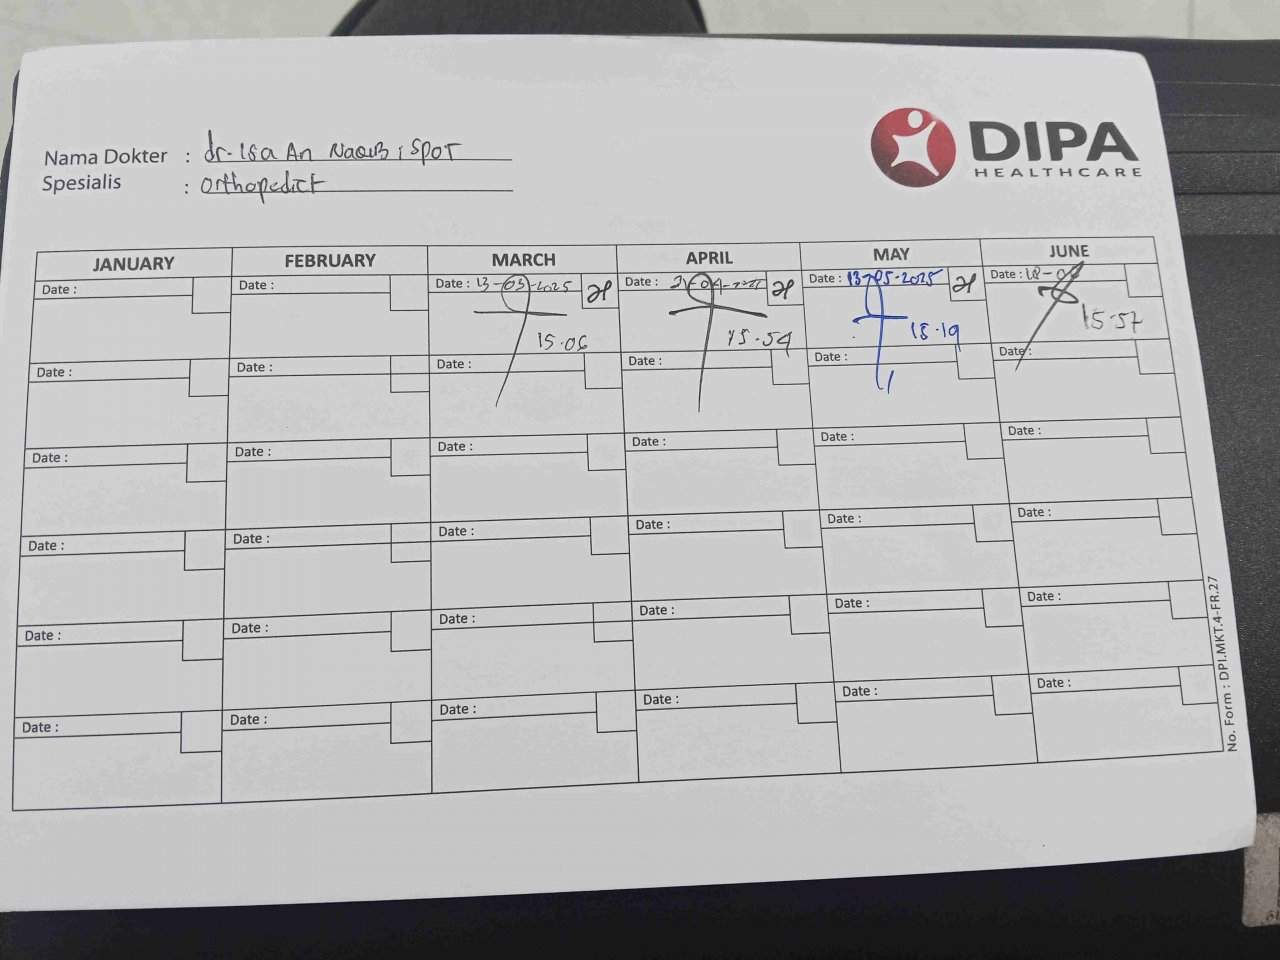 DIPA
HEALTHCARE
Nama Dokter : dr. Isa An Naqib, SpOT
Spesialis : Orthopedict
JANUARY FEBRUARY MARCH APRIL MAY JUNE
Date : Date : Date : 13-03-2025 Date : 21-04- Date : 13-05-2025 Date : 18-06
15.06 15.54 18.19 15.57
Date : Date : Date : Date : Date : Date :
Date : Date : Date : Date : Date : Date :
Date : Date : Date : Date : Date : Date :
Date : Date : Date : Date : Date : Date :
Date : Date : Date : Date : Date : Date :
No. Form : DPI.MKT.4-FR.27